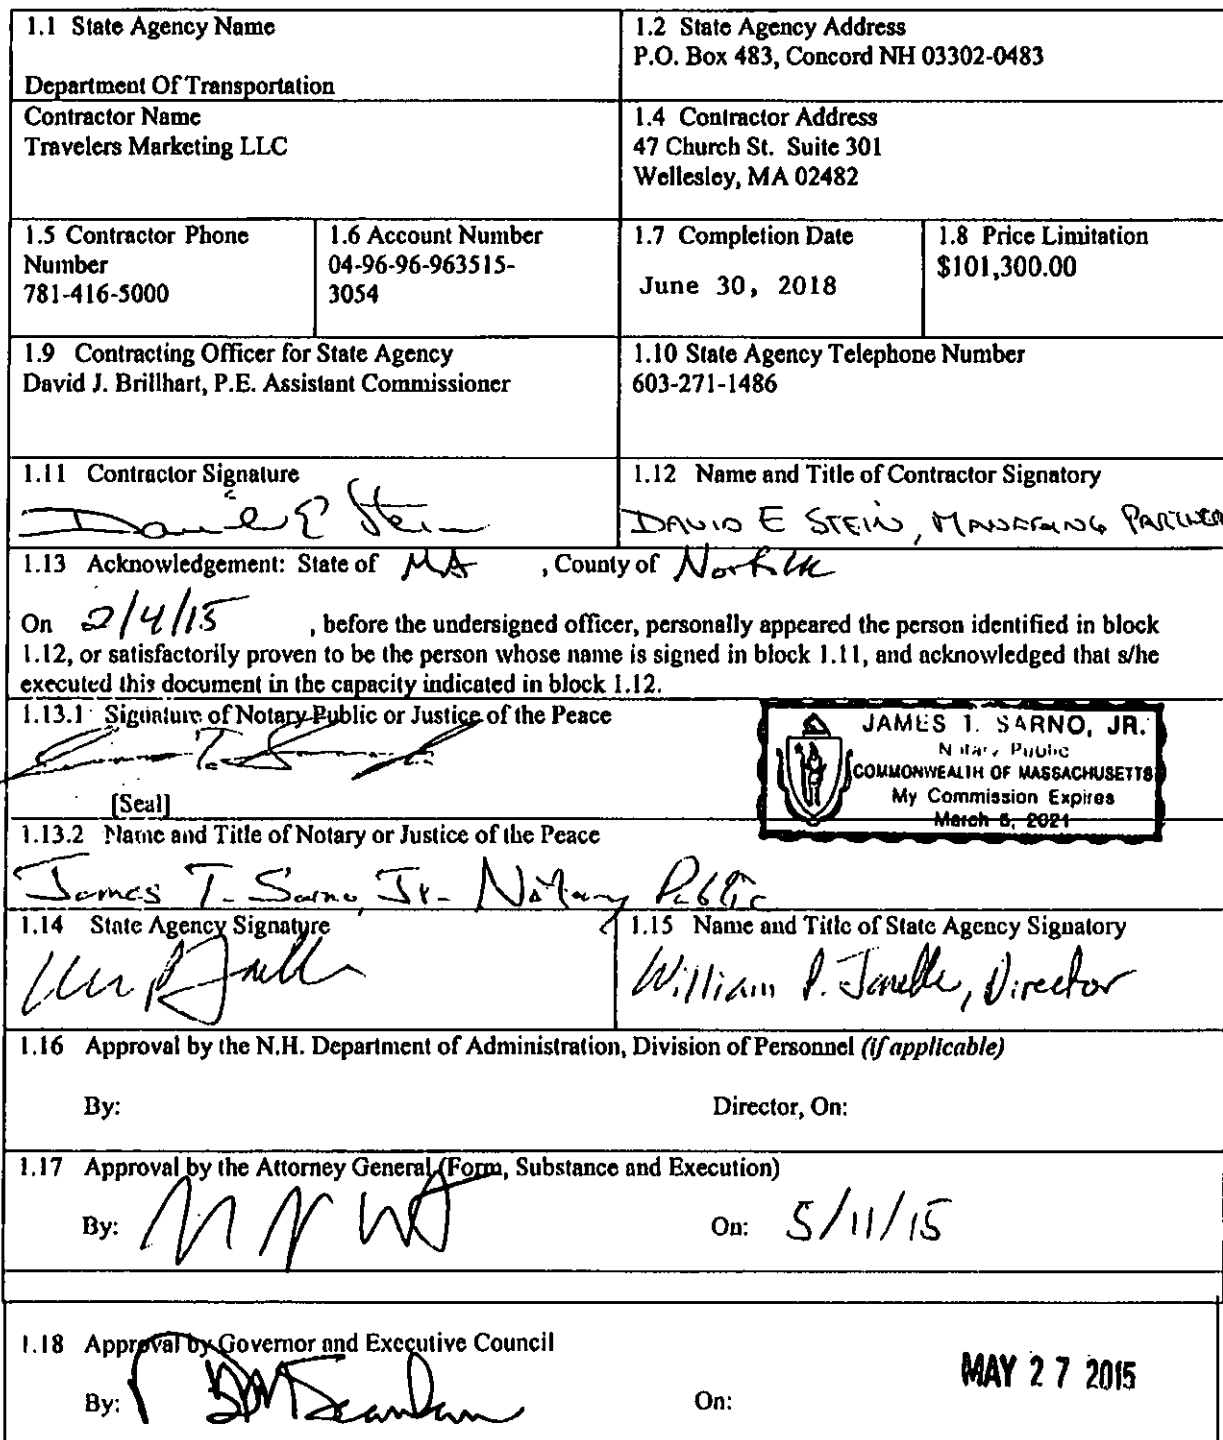 1.1 State Agency Name
Department Of Transportation
1.2 State Agency Address
P.O. Box 483, Concord NH 03302-0483
Contractor Name
Travelers Marketing LLC
1.4 Contractor Address
47 Church St. Suite 301
Wellesley, MA 02482
1.5 Contractor Phone
Number
781-416-5000
1.6 Account Number
04-96-96-963515-
3054
1.7 Completion Date
June 30, 2018
1.8 Price Limitation
$101,300.00
1.9 Contracting Officer for State Agency
David J. Brillhart, P.E. Assistant Commissioner
1.10 State Agency Telephone Number
603-271-1486
1.11 Contractor Signature
1.12 Name and Title of Contractor Signatory
DAVID E STEIN, MANAGING PARTNER
1.13 Acknowledgement: State of MA , County of Norfolk
On 2/4/15 , before the undersigned officer, personally appeared the person identified in block
1.12, or satisfactorily proven to be the person whose name is signed in block 1.11, and acknowledged that s/he
executed this document in the capacity indicated in block 1.12.
1.13.1 Signature of Notary Public or Justice of the Peace
[Seal]
JAMES T. SARNO, JR.
Notary Public
COMMONWEALTH OF MASSACHUSETTS
My Commission Expires
March 5, 2021
1.13.2 Name and Title of Notary or Justice of the Peace
James T. Sarno, Jr. - Notary Public
1.14 State Agency Signature
1.15 Name and Title of State Agency Signatory
William P. Janelle, Director
1.16 Approval by the N.H. Department of Administration, Division of Personnel (if applicable)
By: Director, On:
1.17 Approval by the Attorney General (Form, Substance and Execution)
By: On: 5/11/15
1.18 Approval by Governor and Executive Council
By: On: MAY 27 2015